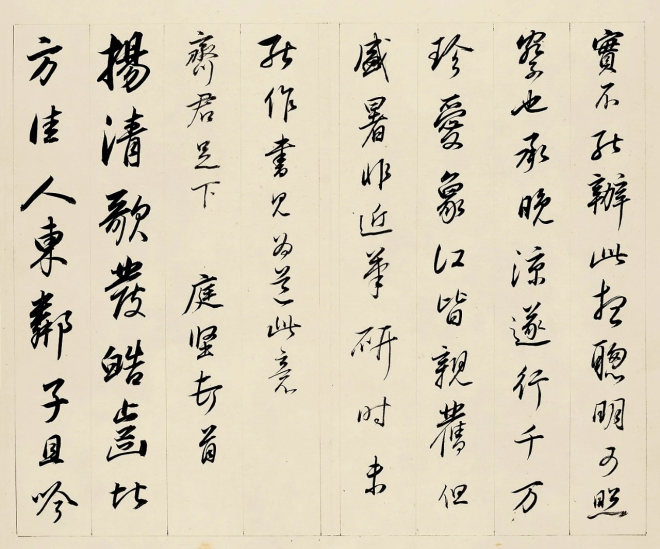 實不能辦此想聰明可照
察也承晚涼遂行千万
珍愛象江皆親舊但
盛暑非近筆研时未
能作書見為道此意
齊君足下 庭堅頓首
揚清歌發皓齒北
方佳人東鄰子且吟